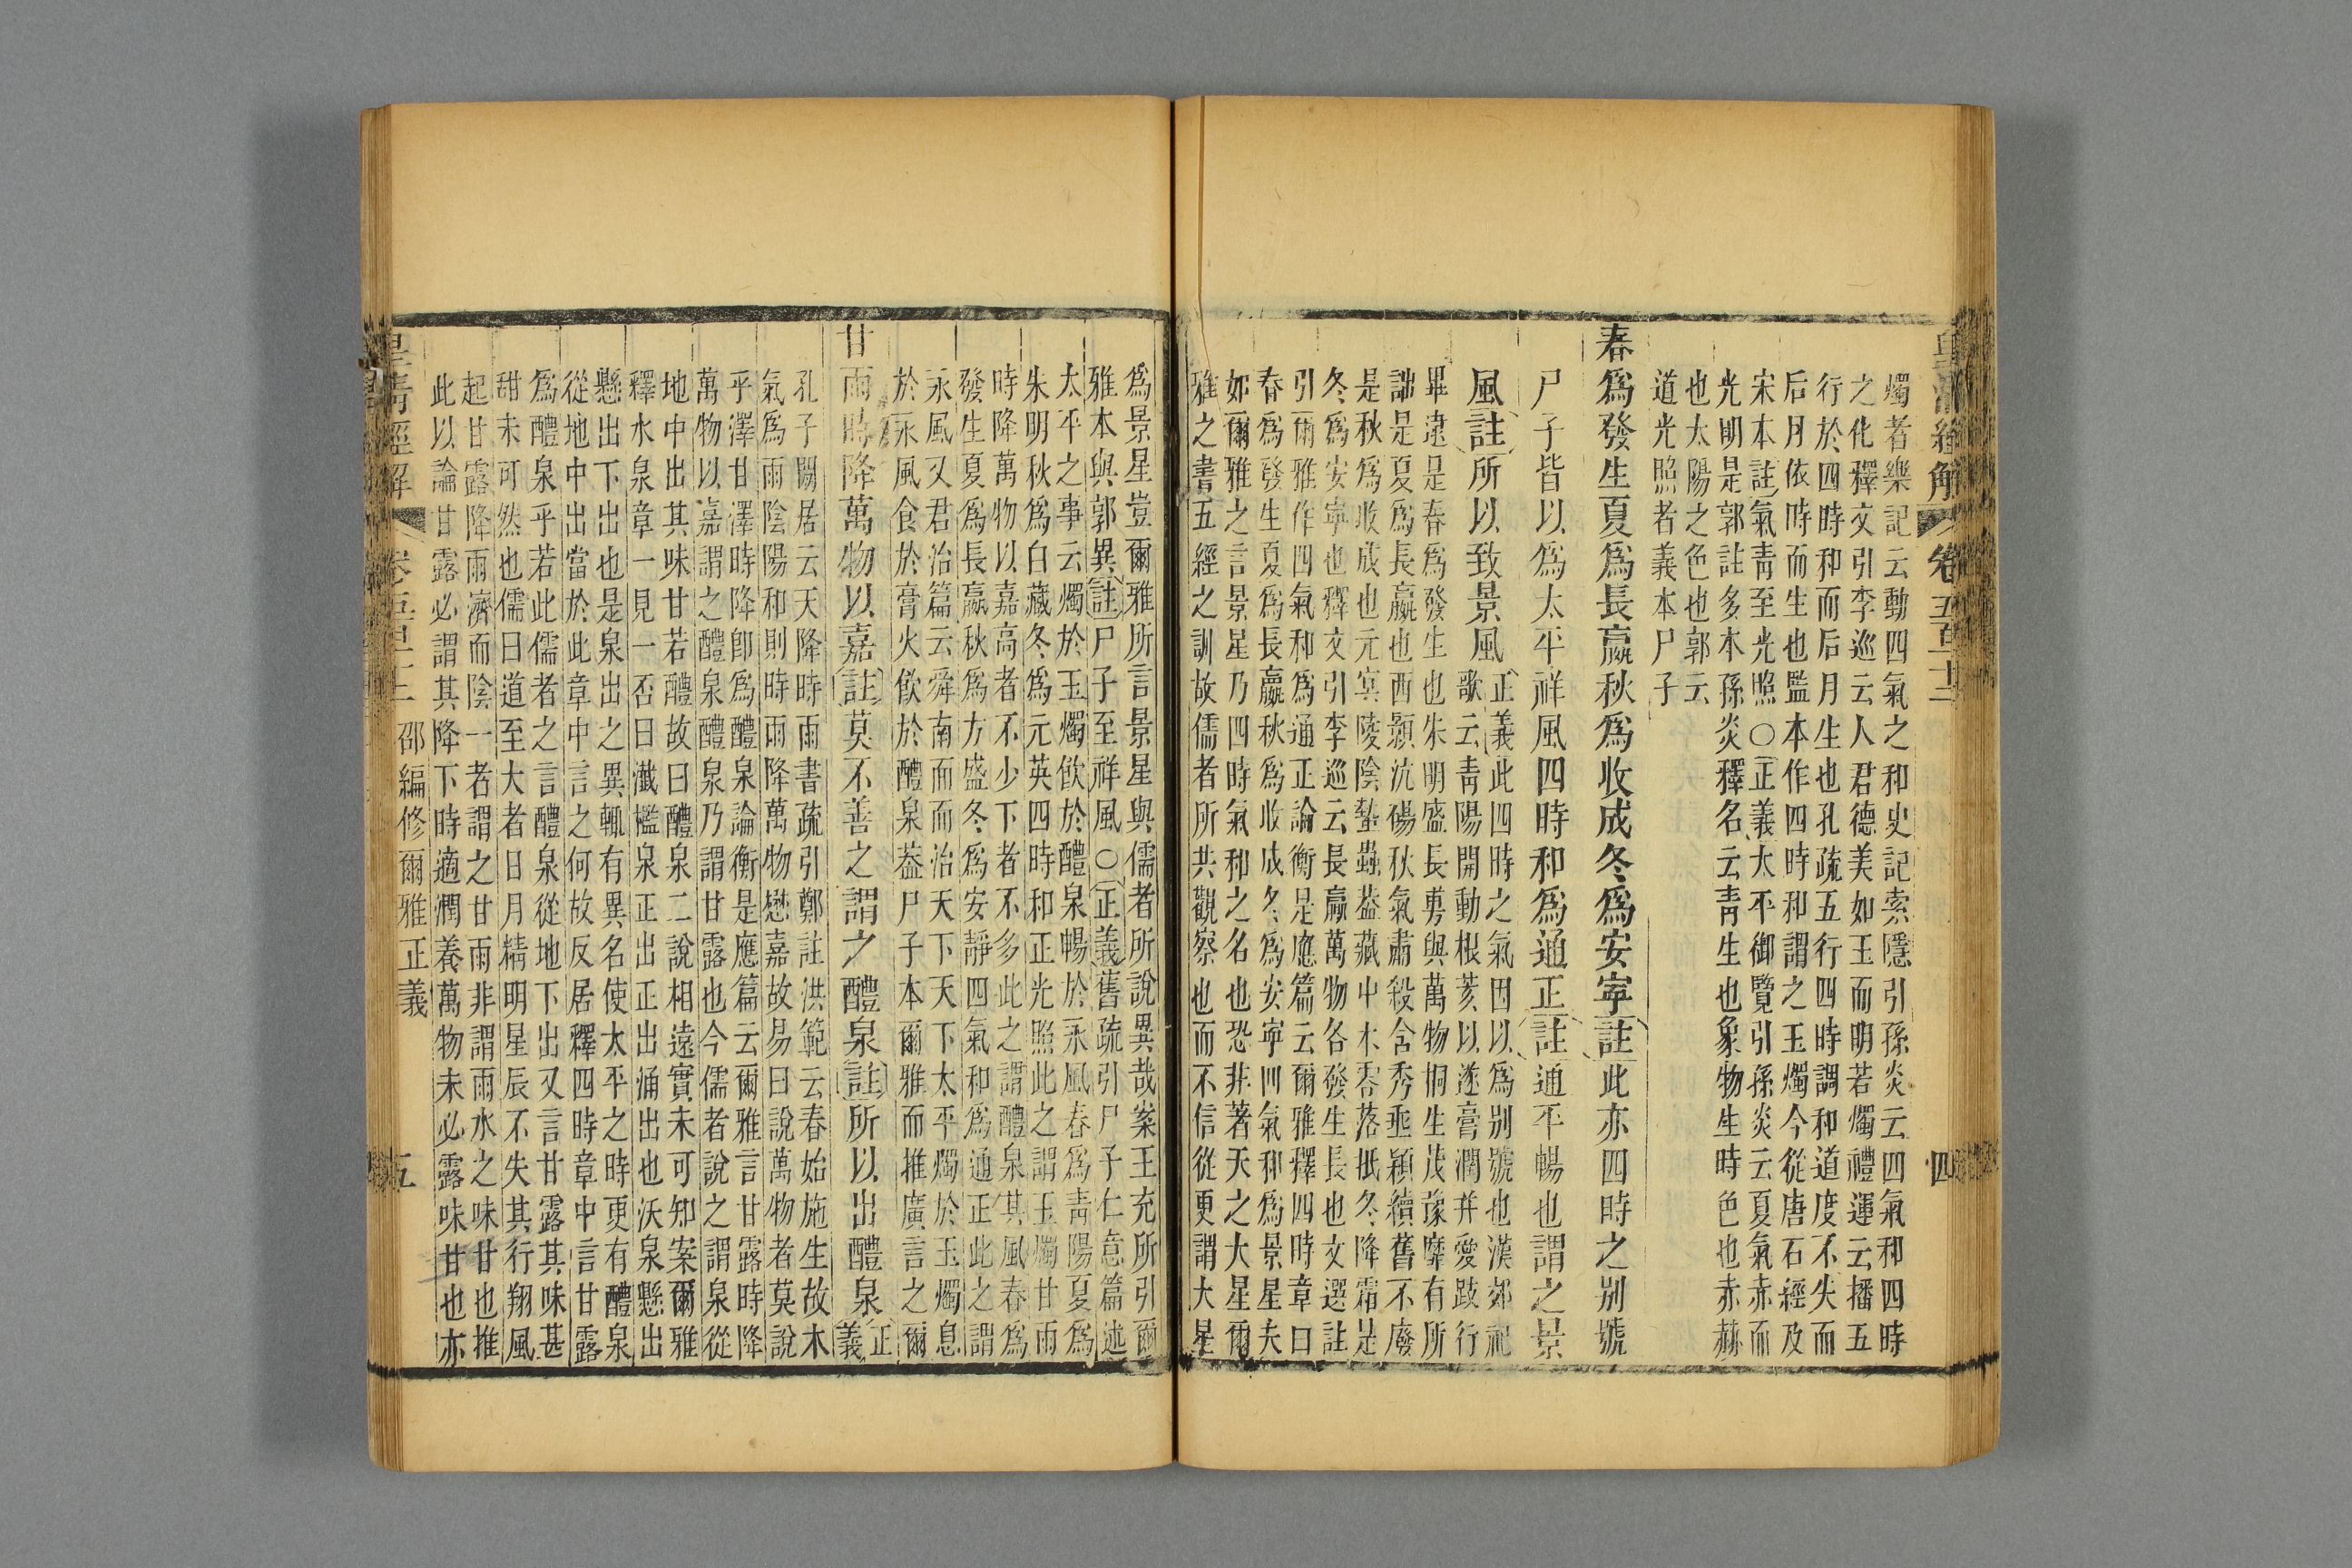 皇清經解
卷五百十二
四
燭者樂記云動四氣之和史記索隱引孫炎云四氣和四時
之化釋文引李巡云人君德美如玉而明若燭禮運云播五
行於四時和而后月生也孔疏五行四時調和道度不失而
后月依時而生也監本作四時和謂之玉燭今從唐石經及
宋本註氣靑至光照○正義太平御覽引孫炎云夏氣赤而
光明是郭註多本孫炎釋名云靑生也象物生時色也赤赫
也太陽之色也郭云
道光照者義本尸子
春爲發生夏爲長嬴秋爲收成冬爲安寕註此亦四時之别號
尸子皆以爲太平祥風四時和爲通正註通平暢也謂之景
風註所以致景風
正義此四時之氣因以爲别號也漢郊祀
歌云靑陽開動根荄以遂膏潤幷愛跂行
畢逮是春爲發生也朱明盛長旉與萬物桐生茂豫靡有所
詘是夏爲長嬴也西顥沆碭秋氣肅殺含秀垂穎續舊不廢
是秋爲收成也元冥陵陰蟄蟲葢藏屮木零落抵冬降霜是
冬爲安寕也釋文引李巡云長嬴萬物各發生長也文選註
引爾雅作四氣和爲通正論衡是應篇云爾雅釋四時章曰
春爲發生夏爲長嬴秋爲收成冬爲安寕四氣和爲景星夫
如爾雅之言景星乃四時氣和之名也恐非著天之大星爾
雅之書五經之訓故儒者所共觀察也而不信從更謂大星
爲景星豈爾雅所言景星與儒者所說異哉案王充所引爾
雅本與郭異註尸子至祥風○正義舊疏引尸子仁意篇述
太平之事云燭於玉燭飮於醴泉暢於永風春爲靑陽夏爲
朱明秋爲白藏冬爲元英四時和正光照此之謂玉燭甘雨
時降萬物以嘉高者不少下者不多此之謂醴泉其風春爲
發生夏爲長嬴秋爲方盛冬爲安靜四氣和爲通正此之謂
永風又君治篇云舜南面而治天下天下太平燭於玉燭息
於永風食於膏火飮於醴泉葢尸子本爾雅而推廣言之爾
甘雨時降萬物以嘉註莫不善之謂之醴泉註所以出醴泉
正
義
孔子閒居云天降時雨書疏引鄭註洪範云春始施生故木
氣爲雨陰陽和則時雨降萬物懋嘉故易曰說萬物者莫說
乎澤甘澤時降卽爲醴泉論衡是應篇云爾雅言甘露時降
萬物以嘉謂之醴泉醴泉乃謂甘露也今儒者說之謂泉從
地中出其味甘若醴故曰醴泉二說相遠實未可知案爾雅
釋水泉章一見一否曰瀸檻泉正出正出涌出也沃泉懸出
懸出下出也是泉出之異輒有異名使太平之時更有醴泉
從地中出當於此章中言之何故反居釋四時章中言甘露
爲醴泉乎若此儒者之言醴泉從地下出又言甘露其味甚
甜未可然也儒曰道至大者日月精明星辰不失其行翔風
起甘露降雨濟而陰一者謂之甘雨非謂雨水之味甘也推
此以論甘露必謂其降下時適潤養萬物未必露味甘也亦
皇淸經解
卷五百十二
邵編修爾雅正義
五